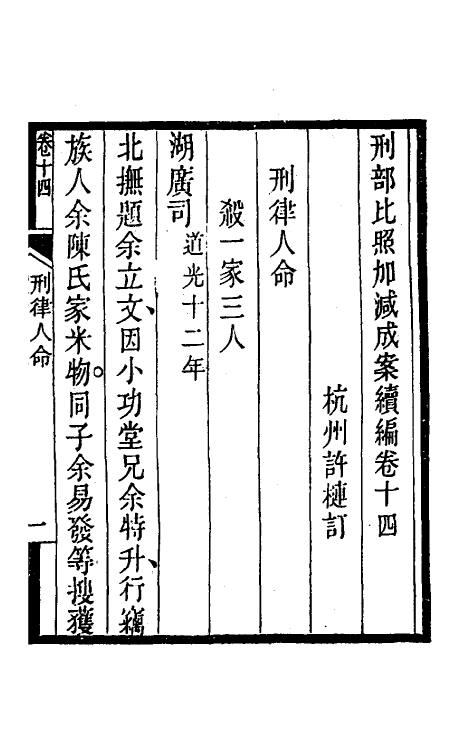 刑部比照加減成案續編卷十四
杭州許槤訂
刑律人命
殺一家三人
湖廣司道光十二年
北撫題余立文、因小功堂兄余特升、行竊
族人余陳氏家米物。同子余易發等搜獲
卷十四
刑律人命
一